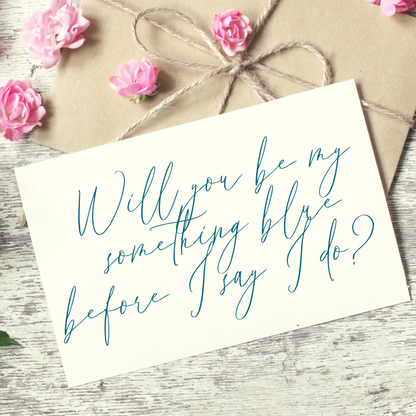 Will you be my
something blue
before I say I do?